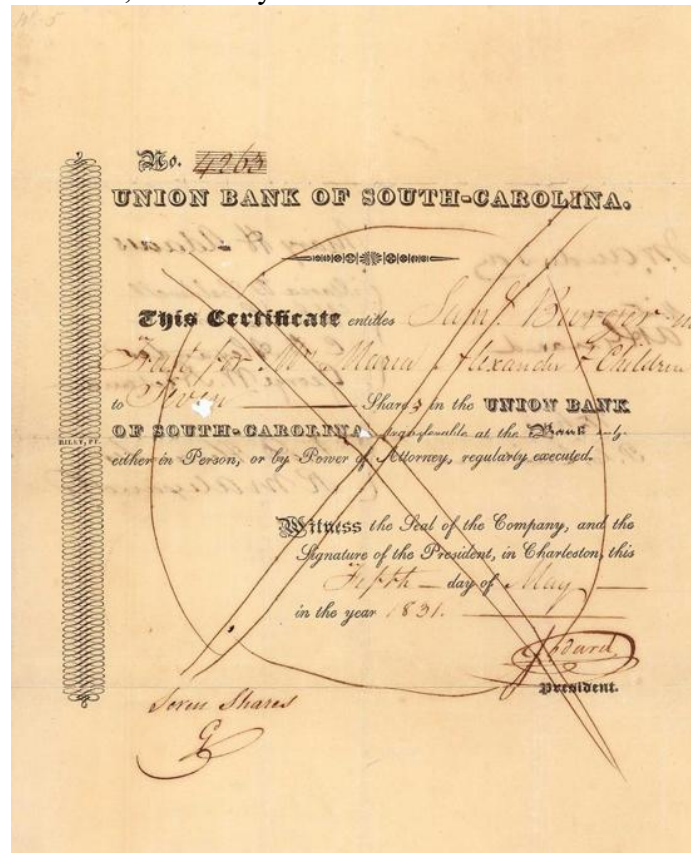 No. 4263
UNION BANK OF SOUTH-CAROLINA.
This Certificate entitles Saml. Burger in
Trust for Mrs. Maria Alexander & Children
to Seven Shares in the UNION BANK
OF SOUTH-CAROLINA, transferable at the Bank only
either in Person, or by Power of Attorney, regularly executed.
RILEY, PT.
Witness the Seal of the Company, and the
Signature of the President, in Charleston, this
Fifth day of May
in the year 1831.
President.
Seven Shares